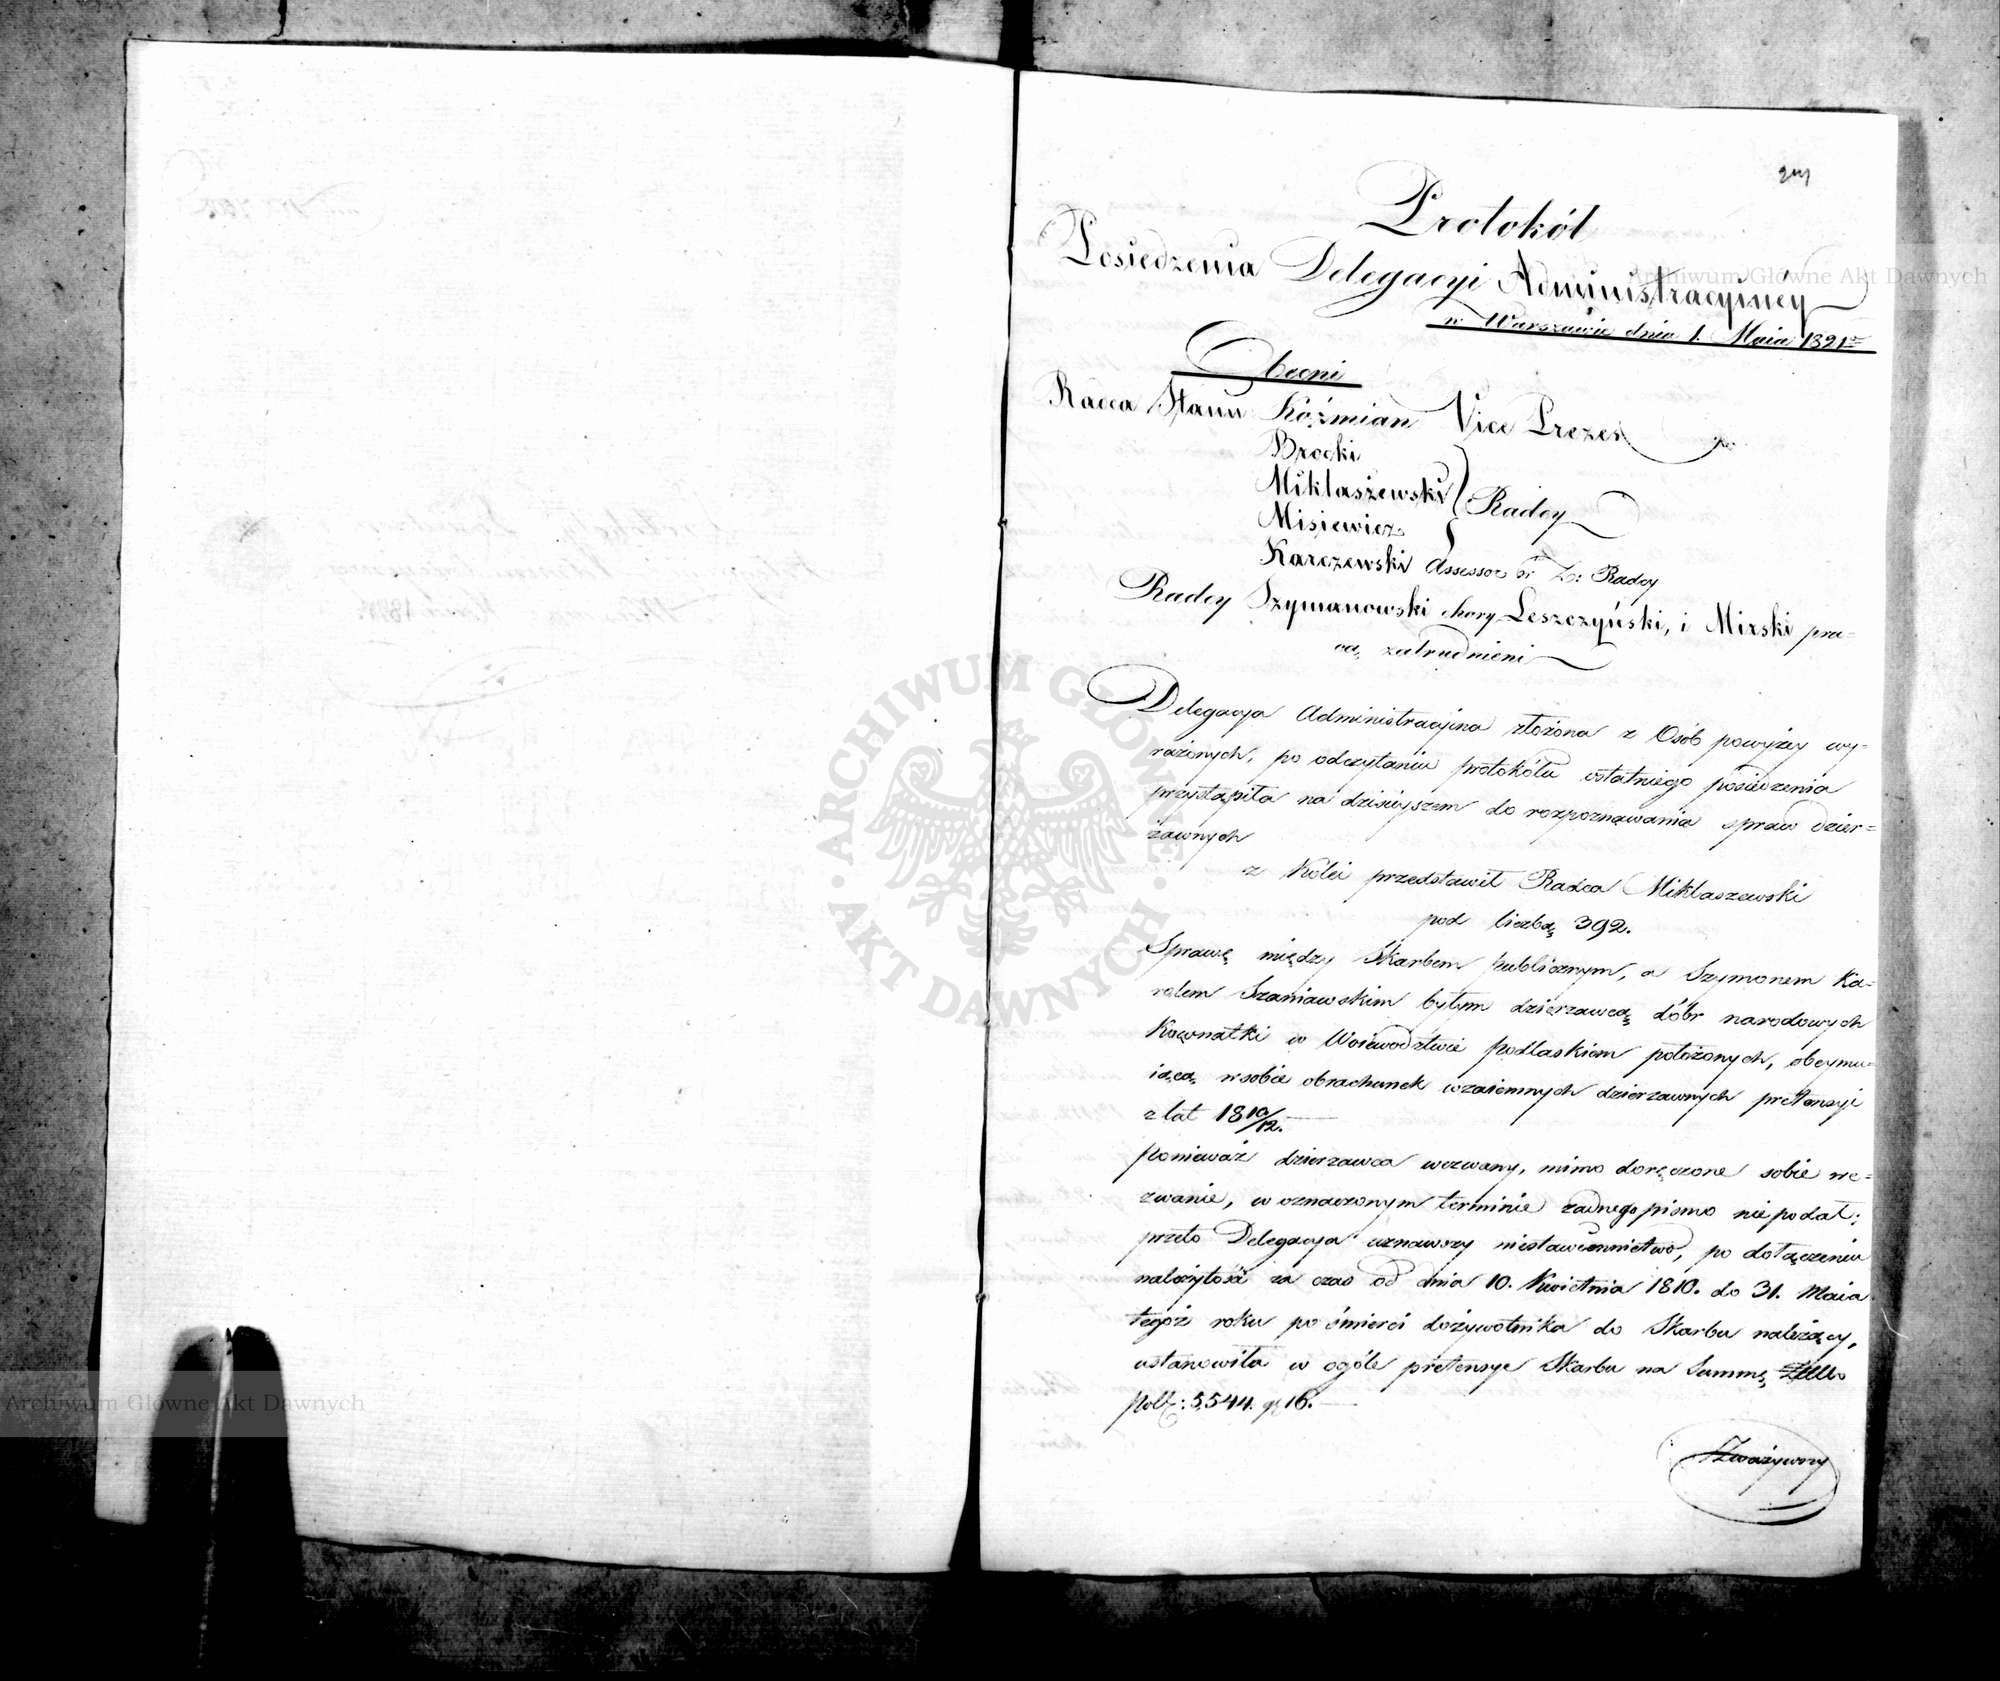 Protokół
Posiedzenia Delegacyi Administracyiney
w Warszawie dnia 1. Maia 1821
Obecni
Radca Stanu Koźmian Vice Prezes
Brocki
Miklaszewski
Radcy
Misiewicz
Karczewski Assessor Z: Radcy
Radcy Szymanowski chory, Leszczyński, i Mirski pra=
cą zatrudnieni
Delegacya Administracyina złożona z Osób powyżey wy=
rażonych, po odczytaniu protokółu ostatniego posiedzenia
przystąpiła na dzisieyszem do rozpoznawania spraw dzier=
żawnych
z Kolei przedstawił Radca Miklaszewski
pod liczbą 392.
Sprawę między Skarbem publicznym, a Szymonem Ka=
rolem Szaniawskim byłym dzierzawcą dóbr narodowych
Kownatki w Woiewodztwie podlaskiem położonych, obeymu=
iącą w sobie obrachunek wzaiemnych dzierzawnych pretensyi
z lat 1810/12.
ponieważ dzierzawca wezwany, mimo doręczone sobie we=
zwanie, w oznaczonym terminie żadnego pismo nie podał;
przeto Delegacya uznawszy niestawiennictwo, po dołączeniu
należytości za czas od dnia 10. Kwietnia 1810. do 31. Maia
tegoż roku po śmierci dożywotnika do Skarbu należący,
ustanowiła w ogóle pretensye Skarbu na Summę
pol: 5,544. gr 16.
Zważywszy
Archiwum Główne Akt Dawnych
Archiwum Główne Akt Dawnych
ARCHIWUM GŁÓWNE · AKT DAWNYCH ·